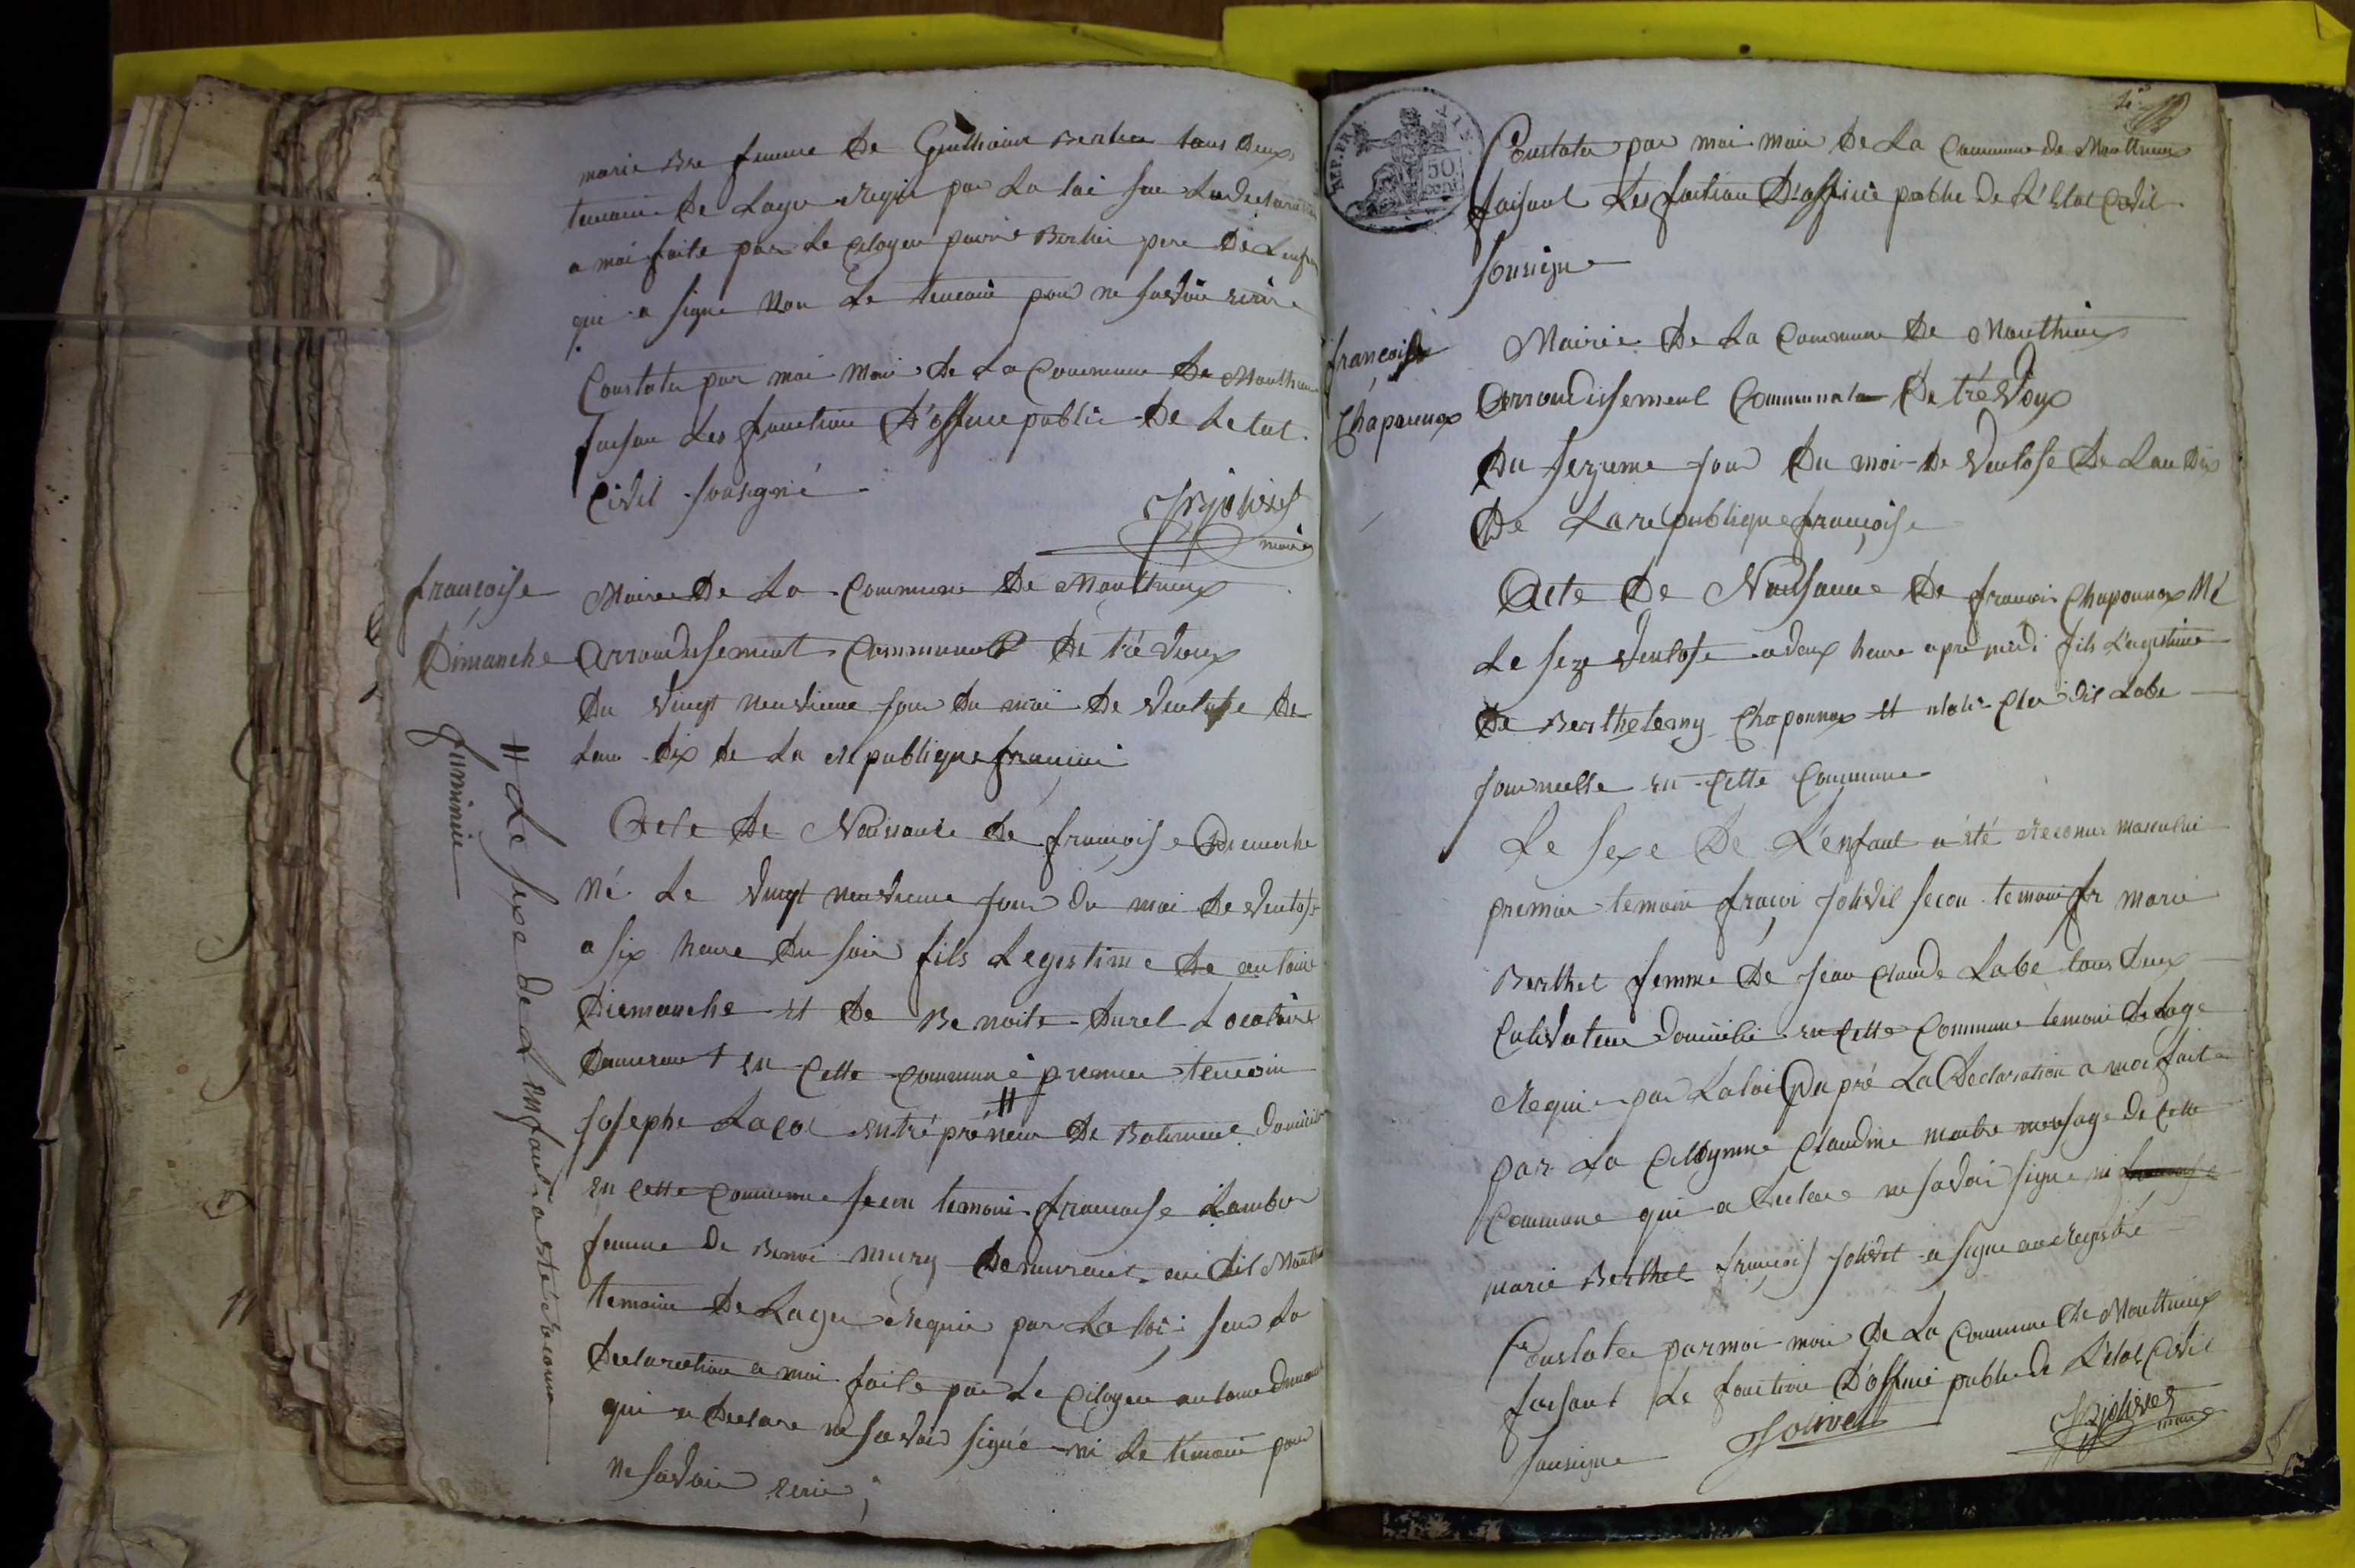 marie Bre femme de Guilliaume Berthee tous deux
temoin de Lage requie par La loi sur La declaration
a moi faite par Le citoyen pierre Berthier pere de Lenfan
qui a signe non Le temoin pour ne savoir ecrire
Constater par moi maire de La Commune de Monthieux
faisan Les fonction D'officie public de Letat
Civil sousigné
maire
françoise
Dimanche
feminin
Mairie De La Commune De Monthieux
arrondissement Communal de trévoux
Du vingt neuvieme jour du moi de ventose de
Lan dix de La republique
Acte de Naissance de françoise Dimanche
né Le vingt neuvieme jour du moi de ventose
a six heure Du soir fils Legestime de antoine
Diemanche et de Benoite Durel Locataire
Demeurant en Cette Commune premier temoin
#
Josephe Lacol entrépréneur de Batiment domicile
en cette commune secon temoin francoise Lambe
femme de Benoi mury demeurant au dit
temoin de Lage requie par La loi sur La
declaration a moi faite par Le Citoyen antoine
qui a declare ne savoir signé ni Le temoin pour
ne savoir ecrire ;
# Le sexe de Lenfant a été reconu
REP. FRA.
50
cent
Constater par moi maire de La Commune de Monthieux
faisant Les fontion D'officie public de L'Etat Civil
sousigne
françois
Chaponnox
Mairie de La Commune de Monthieux
arrondissement Communale de trévoux
Du sezieme jour Du moi de ventose de Lan dix
De La republique françoise
Acte de Naissance de francois Chaponnox Né
Le seze ventose a deux heure apré midi fils Legestime
de Berthelemy Chaponnox et Labe
journellie en Cette Commune
Le sexe de L'enfant a été reconu masculin
premier temoin françoi Jolivet secon temoin fr marie
Berthet femme de Jean Claude Labé tous deux
Cultivateur domicilie en Cette Commune temoin de Lage
requie par La loi Dapré La Declaration a moi faite
par La Citoyenne Claudine de Cette
Commune qui a declare ne savoir signe ni
marie Berthet françois Jolivet a signe au registre
Constater par moi maire de La Commune de Monthieux
faisant Le fonction D'officie public de L'etat Civil
sousigne
Jolivet
maire